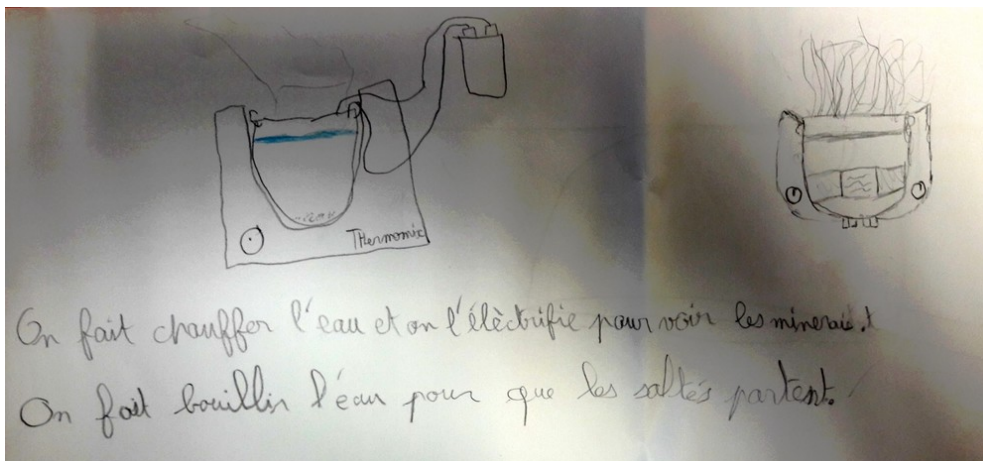 THermomix
On fait chauffer l'eau et on l'élèctrifie pour voir les minerais.
On fait bouillir l'eau pour que les saltés partent.